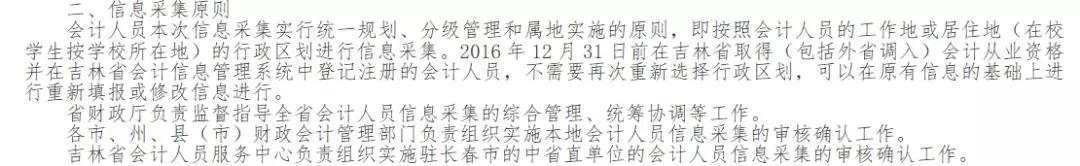 二、信息采集原则
会计人员本次信息采集实行统一规划、分级管理和属地实施的原则，即按照会计人员的工作地或居住地（在校
学生按学校所在地）的行政区划进行信息采集。2016年12月31日前在吉林省取得（包括外省调入）会计从业资格
并在吉林省会计信息管理系统中登记注册的会计人员，不需要再次重新选择行政区划，可以在原有信息的基础上进
行重新填报或修改信息进行。
省财政厅负责监督指导全省会计人员信息采集的综合管理、统筹协调等工作。
各市、州、县（市）财政会计管理部门负责组织实施本地会计人员信息采集的审核确认工作。
吉林省会计人员服务中心负责组织实施驻长春市的中省直单位的会计人员信息采集的审核确认工作。